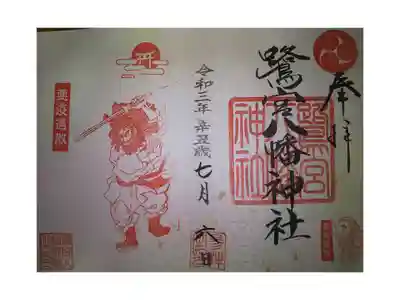 奉拝
鷺宮八幡神社
鷺宮
神社
令和三年 辛丑歳 七月 六日
悪疫退散